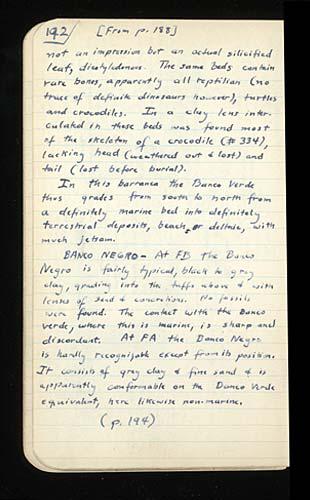 192 [From p. 188]
not an impression but an actual silicified
leaf, dicotyledonous. The same beds contain
rare bones, apparently all reptilian (no
trace of definite dinosaurs however), turtles
and crocodiles. In a clay lens inter-
culated in these beds was found most
of the skeleton of a crocodile (# 334),
lacking head (weathered out & lost) and
tail (lost before burial).
In this barranca the Banco Verde
thus grades from south to north from
a definitely marine bed into definitely
terrestrial deposits, beach, or deltaic, with
much jetsam.
BANCO NEGRO - At FB the Banco
Negro is fairly typical, black to grey
clay, grading into the tuffs above & with
lenses of sand & concretions. No fossils
were found. The contact with the Banco
Verde, where this is marine, is sharp and
discordant. At PA the Banco Negro
is hardly recognizable except from its position.
It consists of grey clay & fine sand & is
apparently conformable on the Banco Verde
equivalent, here likewise non-marine.
(p. 194)